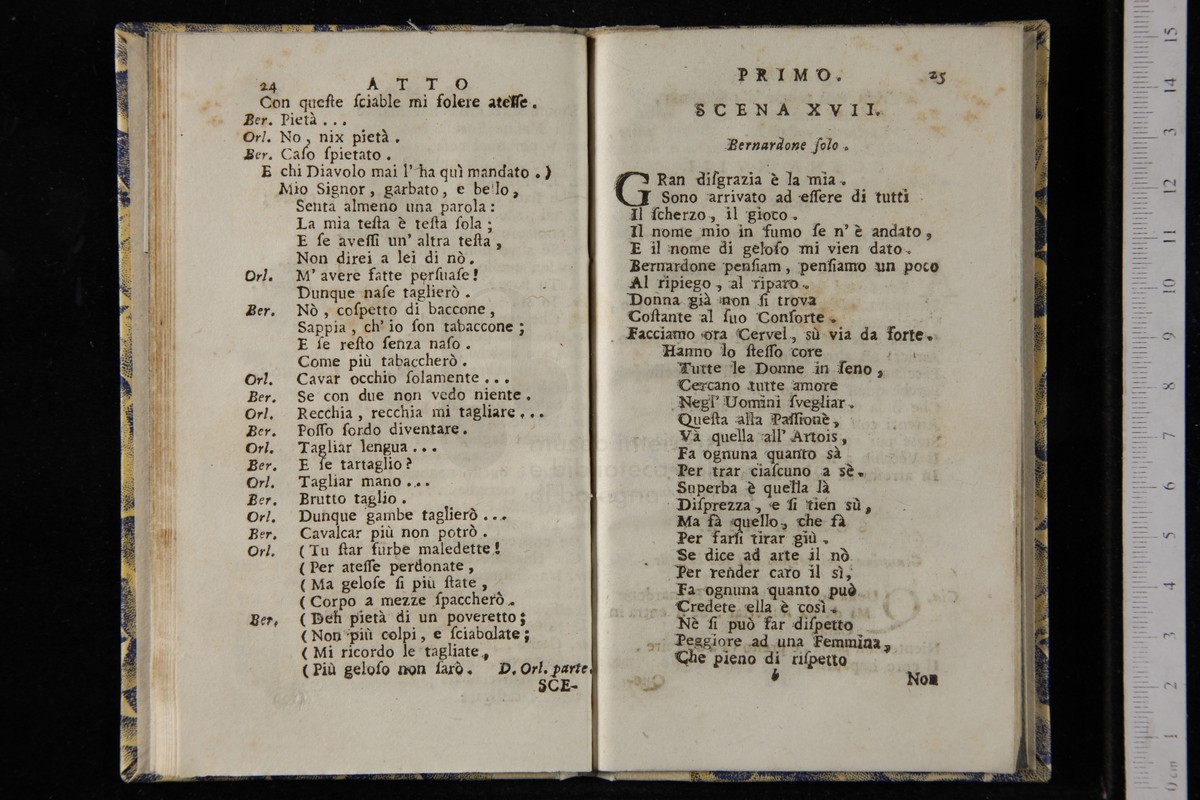 24 ATTO
Con queſte ſciable mi folere ateſſe.
Ber. Pietà . . .
Orl. No, nix pietà.
Ber. Caſo ſpietato.
E chi Diavolo mai l' ha quì mandato.)
Mio Signor, garbato, e bello,
Senta almeno una parola:
La mia teſta è teſta ſola;
E ſe aveſſi un' altra teſta,
Non direi a lei di nò.
Orl. M' avere fatte perſuaſe!
Dunque naſe taglierò.
Ber. Nò, coſpetto di baccone,
Sappia, ch' io ſon tabaccone;
E ſe reſto ſenza naſo.
Come più tabaccherò.
Orl. Cavar occhio ſolamente . . .
Ber. Se con due non vedo niente.
Orl. Recchia, recchia mi tagliare . . .
Ber. Poſſo ſordo diventare.
Orl. Tagliar lengua . . .
Ber. E ſe tartaglio?
Orl. Tagliar mano . . .
Ber. Brutto taglio.
Orl. Dunque gambe taglierò . . .
Ber. Cavalcar più non potrò.
Orl. (Tu ſtar furbe maledette!
(Per ateſſe perdonate,
(Ma geloſe ſi più ſtate,
(Corpo a mezze ſpaccherò.
Ber. (Deh pietà di un poveretto;
(Non più colpi, e ſciabolate;
(Mi ricordo le tagliate,
(Più geloſo non ſarò. D. Orl. parte.
SCE-
PRIMO. 25
SCENA XVII.
Bernardone ſolo.
GRan diſgrazia è la mia.
Sono arrivato ad eſſere di tutti
Il ſcherzo, il gioco.
Il nome mio in fumo ſe n' è andato,
E il nome di geloſo mi vien dato.
Bernardone penſiam, penſiamo un poco
Al ripiego, al riparo.
Donna già non ſi trova
Coſtante al ſuo Conſorte.
Facciamo ora Cervel, sù via da forte.
Hanno lo ſteſſo core
Tutte le Donne in ſeno,
Cercano tutte amore
Negl' Uomini ſvegliar.
Queſta alla Paſſionè,
Và quella all' Artois,
Fa ognuna quanto sà
Per trar ciaſcuno a sè.
Superba è quella là
Diſprezza, e ſi tien sù,
Ma fà quello, che fà
Per farſi tirar giù.
Se dice ad arte il nò
Per render caro il sì,
Fa ognuna quanto può
Credete ella è così.
Nè ſi può far diſpetto
Peggiore ad una Femmina,
Che pieno di riſpetto
b Non